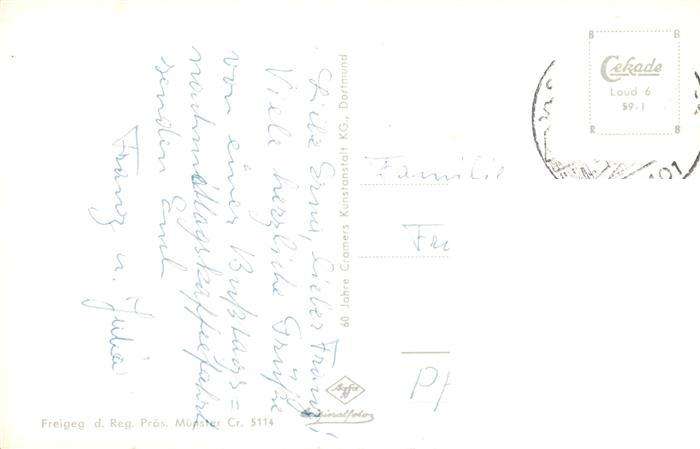 Liebe Erna, lieber Franz!
Viele herzliche Grüße
von einer Bußtags=
nachmittagskaffeefahrt
senden Euch
Franz u. Julia
60 Jahre Cramers Kunstanstalt KG., Dortmund
Familie
Cekade
Laud 6
59.1
Agfa
Originalfoto
Freigeg d. Reg. Präs. Münster Cr. 5114